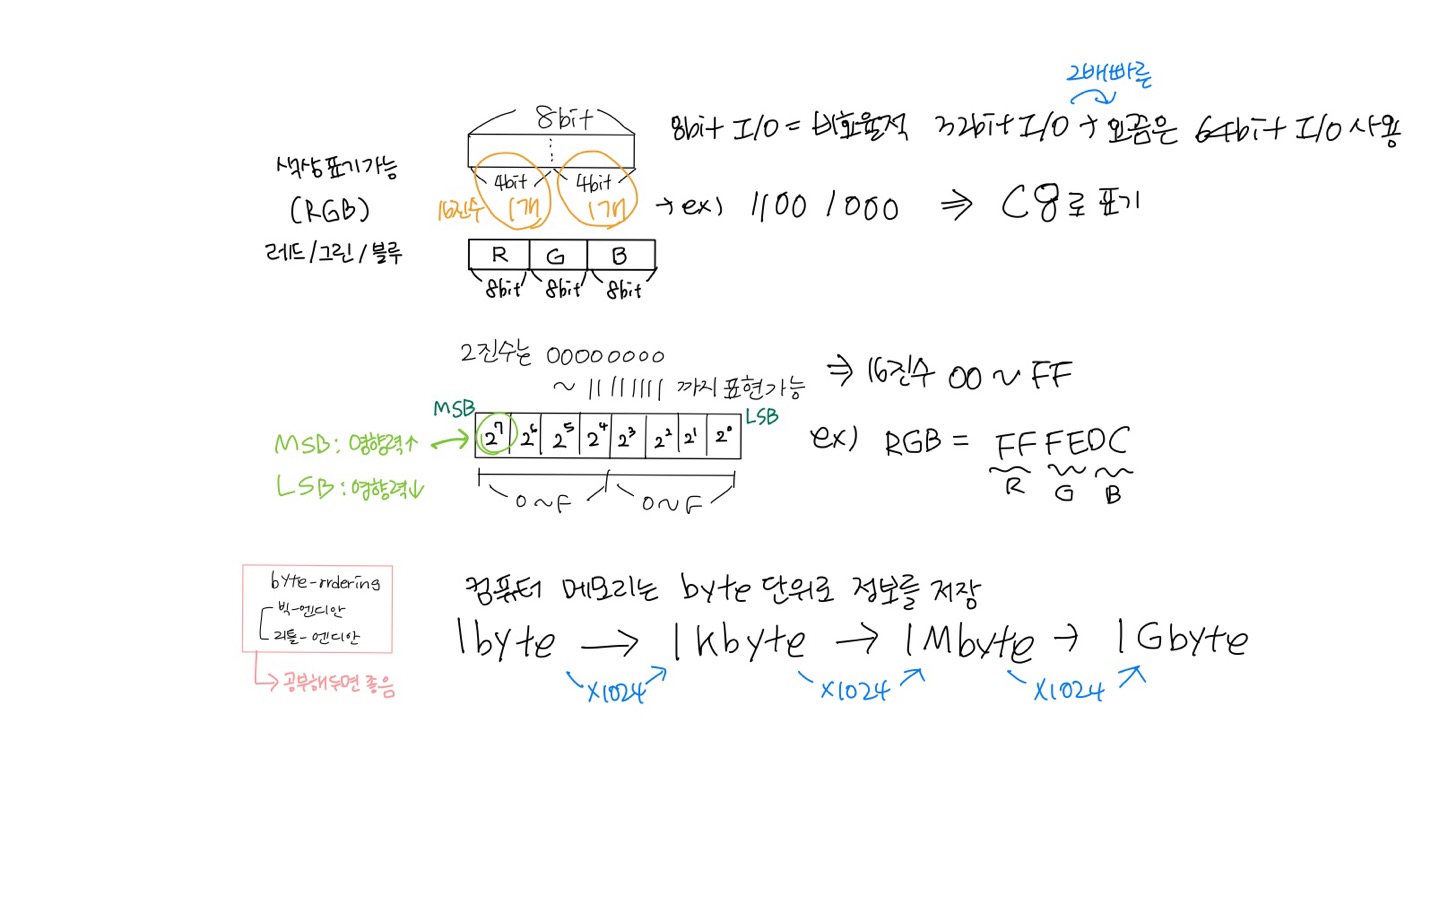 2배빠름
8bit
8bit I/O = 비효율적 32bit I/O → 요즘은 64bit I/O 사용
색상표기가능
(RGB)
레드/그린/블루
4bit 4bit
16진수 1개 1개
→ ex) 1100 1000 ⇒ C8로 표기
R G B
8bit 8bit 8bit
2진수는 00000000
~ 11111111 까지 표현가능
⇒ 16진수 00 ~ FF
MSB LSB
2⁷ 2⁶ 2⁵ 2⁴ 2³ 2² 2¹ 2⁰
MSB : 영향력↑
LSB : 영향력↓
0~F 0~F
ex) RGB = FFFEDC
R G B
byte-ordering
빅-엔디안
리틀-엔디안
공부해두면 좋음
컴퓨터 메모리는 byte 단위로 정보를 저장
1byte → 1Kbyte → 1Mbyte → 1Gbyte
x1024 x1024 x1024